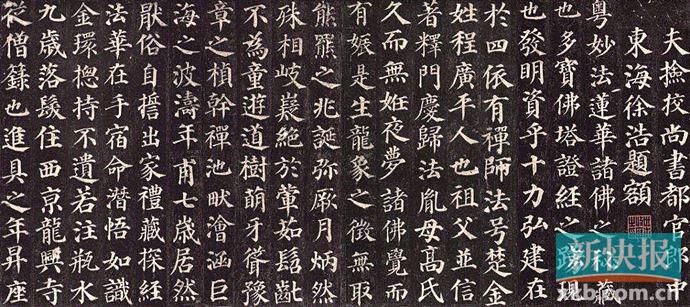 夫撿挍尚書都官郎中
東海徐浩題額
粤妙法蓮華諸佛之秘藏
也多寶佛塔證經之踴現
也發明資乎十力弘建在
於四依有禪師法号楚金
姓程廣平人也祖父並信
著釋門慶歸法胤母高氏
久而無姙夜夢諸佛覺而
有娠是生龍象之徵無取
熊羆之兆誕弥厥月炳然
殊相岐嶷絕於葷茹髫齓
不為童遊道樹萌牙聳豫
章之楨幹禪池畎澮涵巨
海之波濤年甫七歲居然
厭俗自誓出家禮藏探經
法華在手宿命潛悟如識
金環揔持不遺若注瓶水
九歲落髮住西京龍興寺
從僧籙也進具之年昇座
新快报
xkb.com.cn